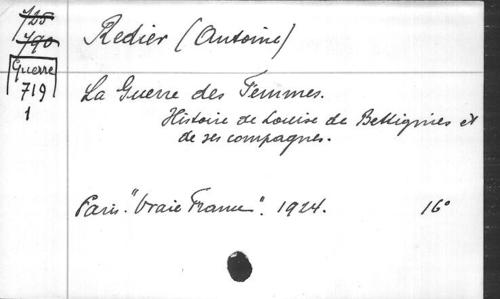 125
790
Guerre
719
1
Redier (Antoine)
La Guerre des Femmes.
Histoire de Louise de Bettignies et
de ses compagnes.
Paris. "Vraie France". 1924. 16°